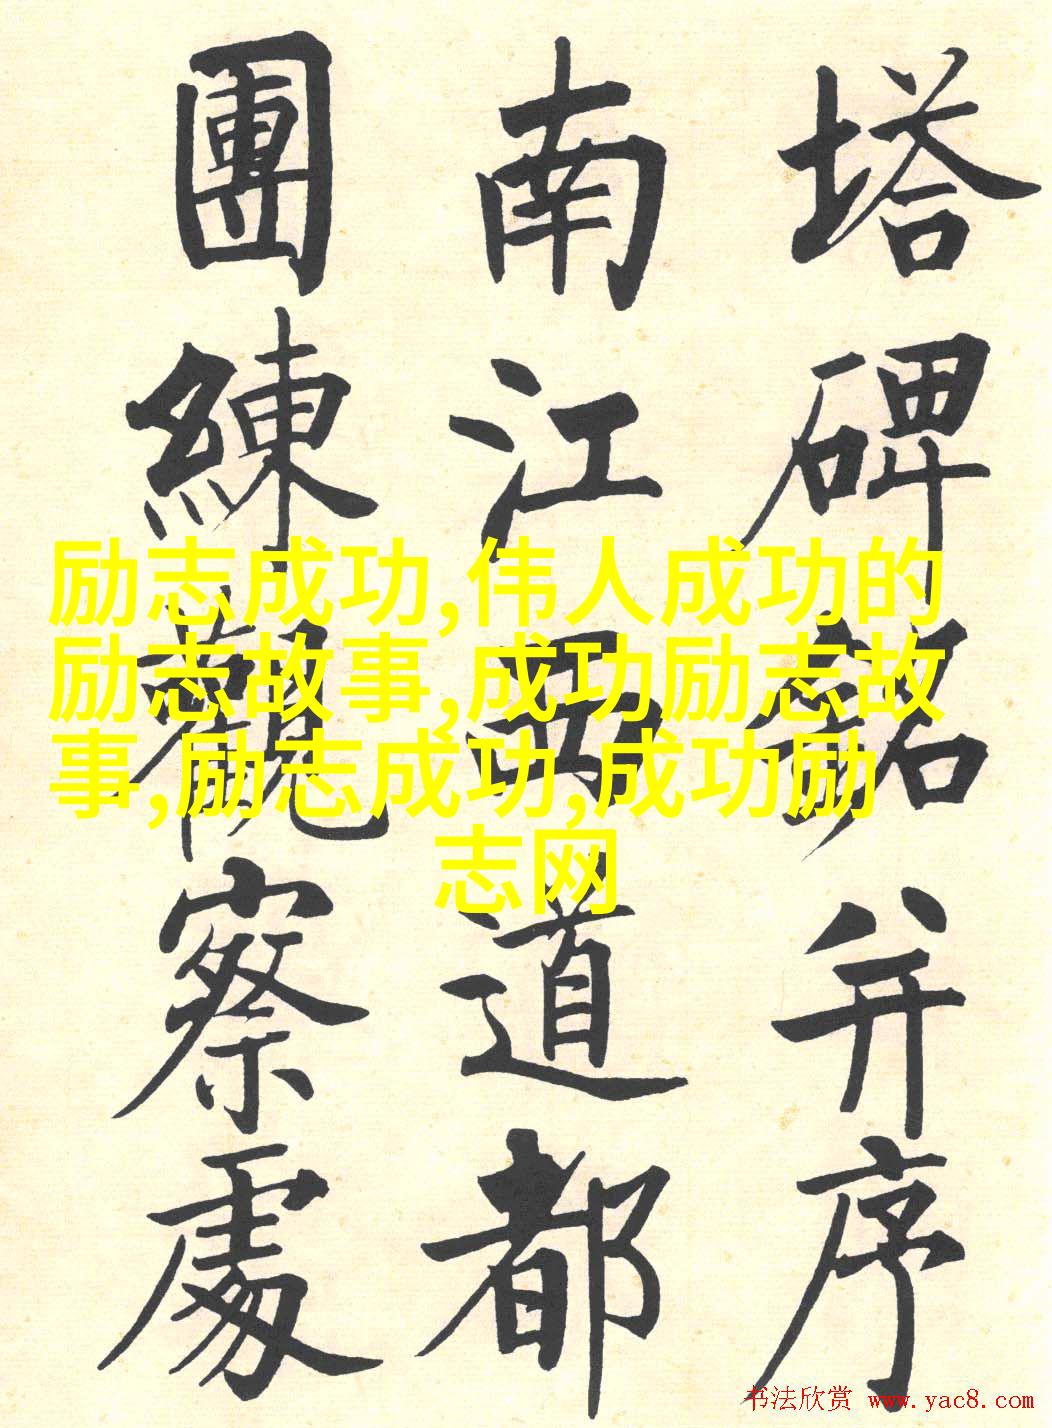 塔碑銘并序
南江西道都
團練觀察處
励志成功,伟人成功的
励志故事,成功励志故
事,励志成功,成功励
志网
书法欣赏 www.yac8.com